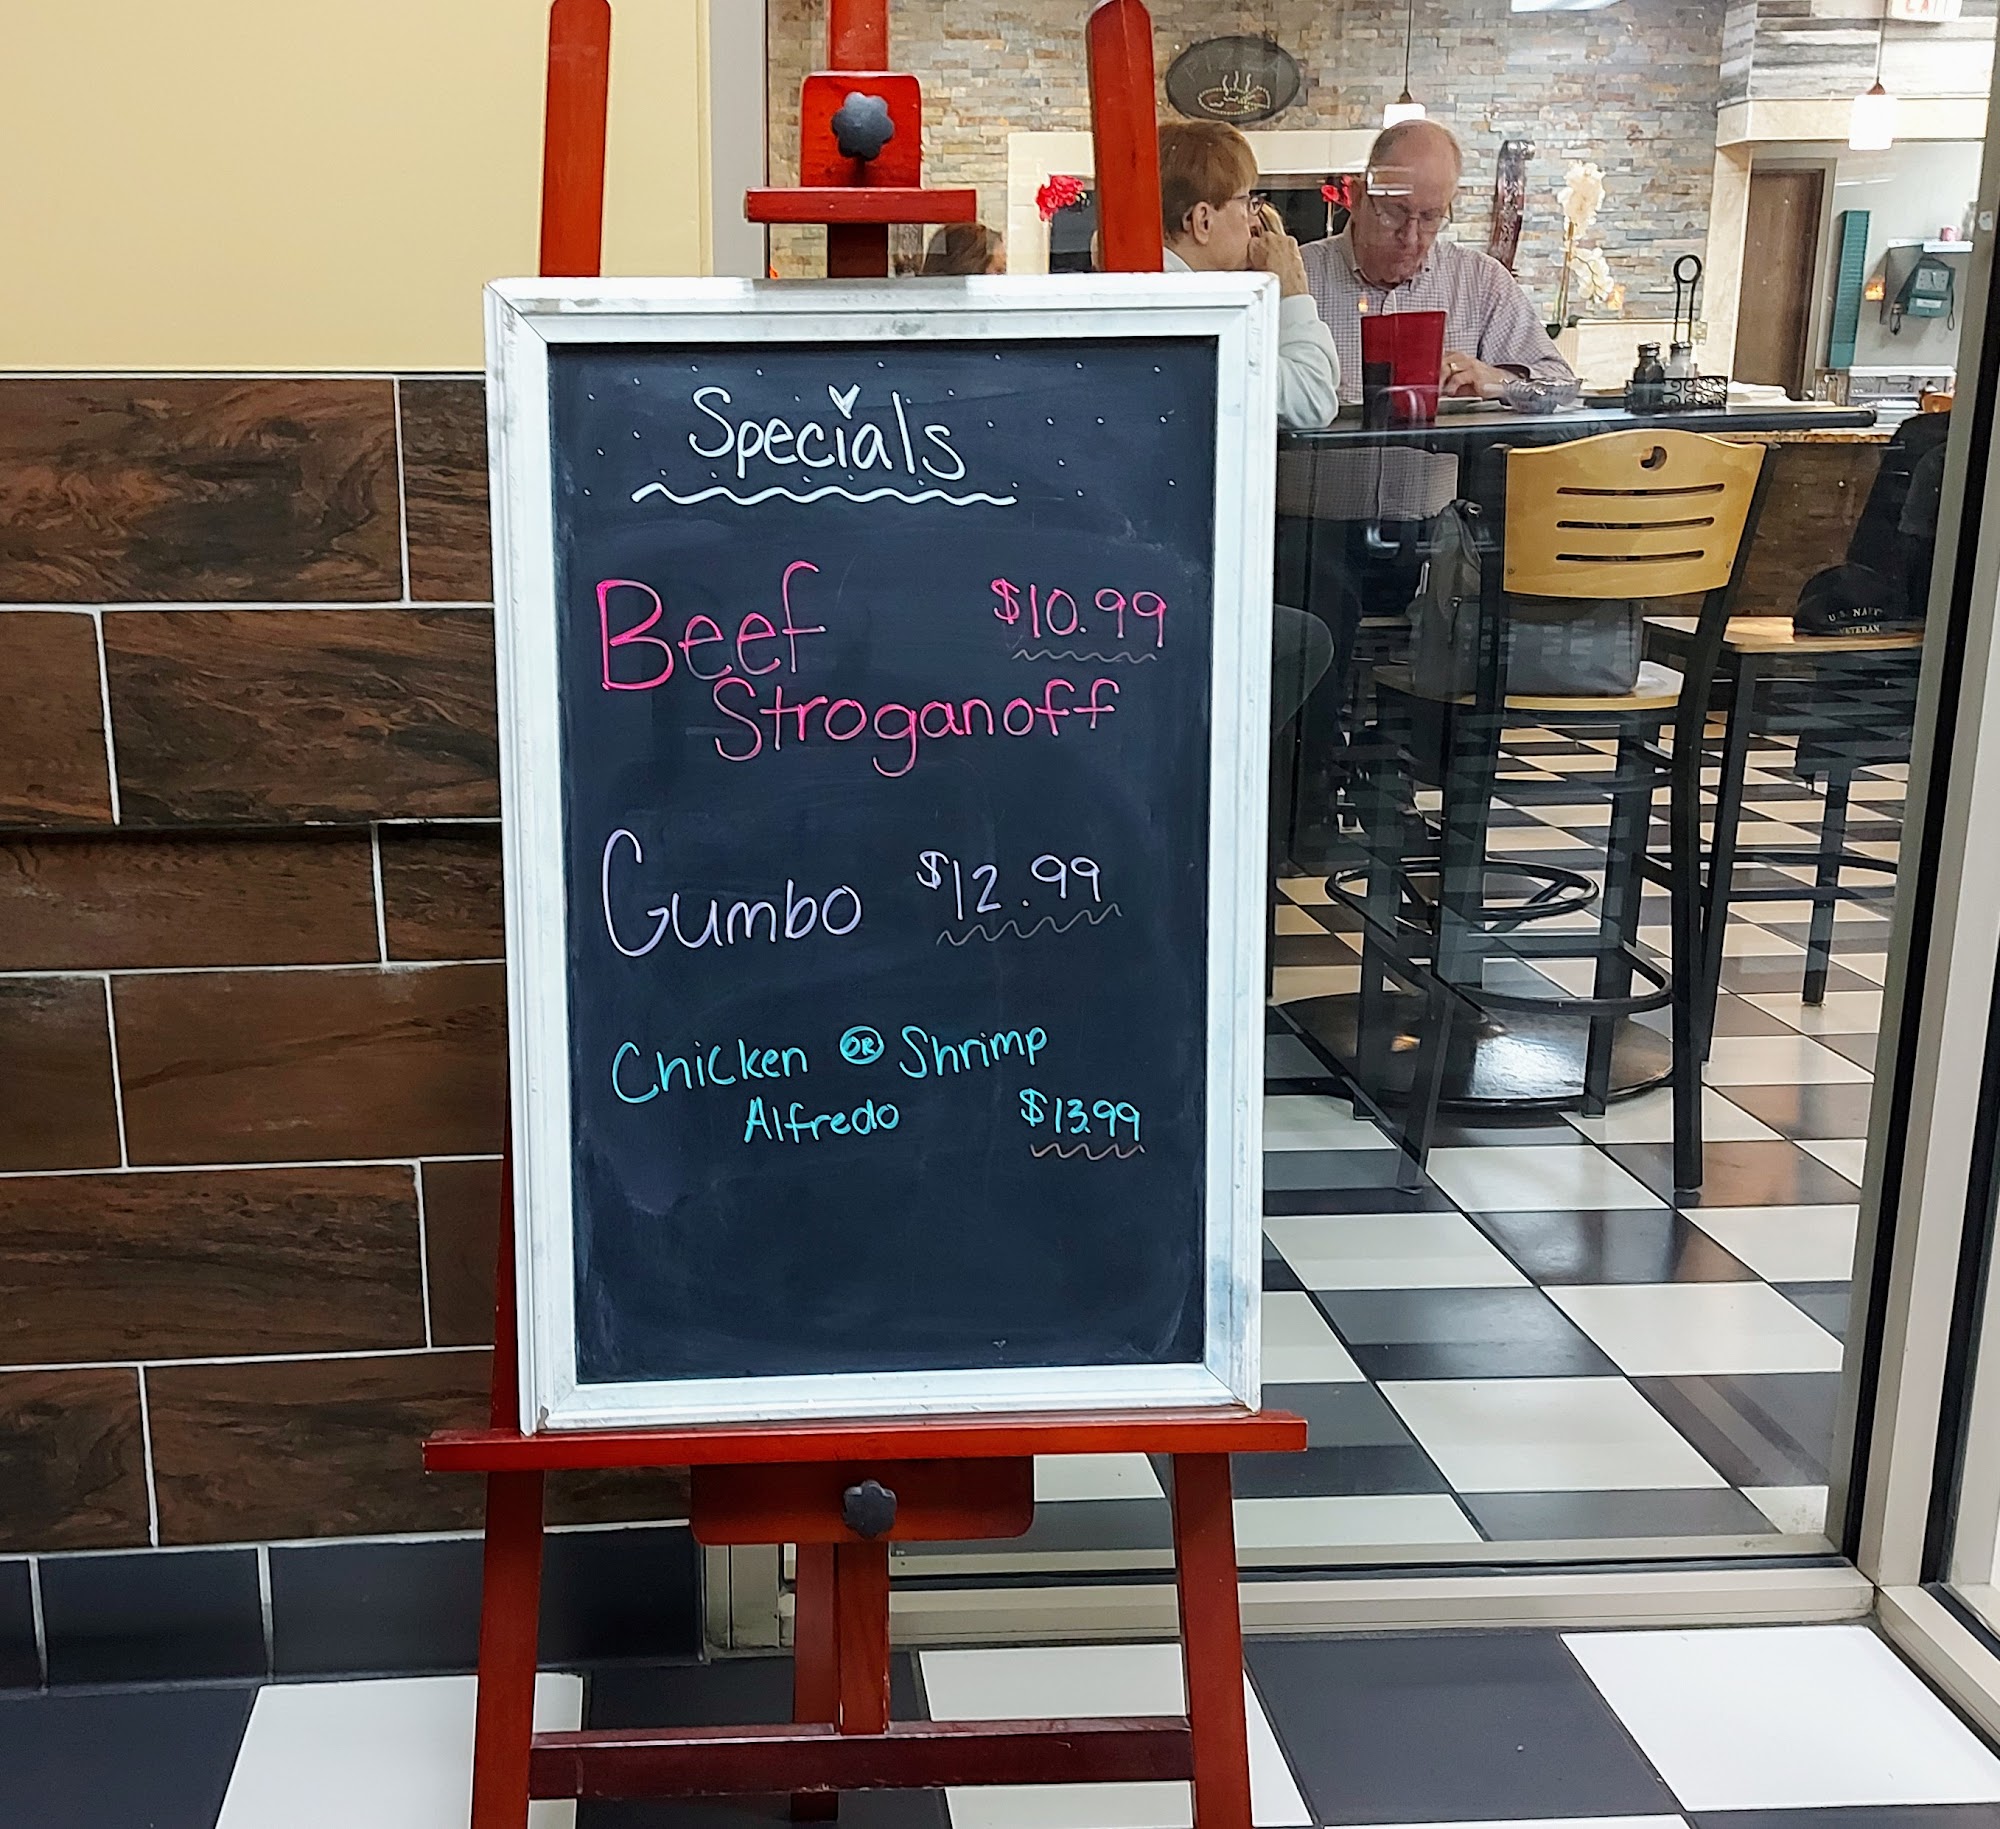 Specials
Beef $10.99
Stroganoff
Gumbo $12.99
Chicken OR Shrimp
Alfredo $13.99
PIZZA
U.S. NAVY
VETERAN